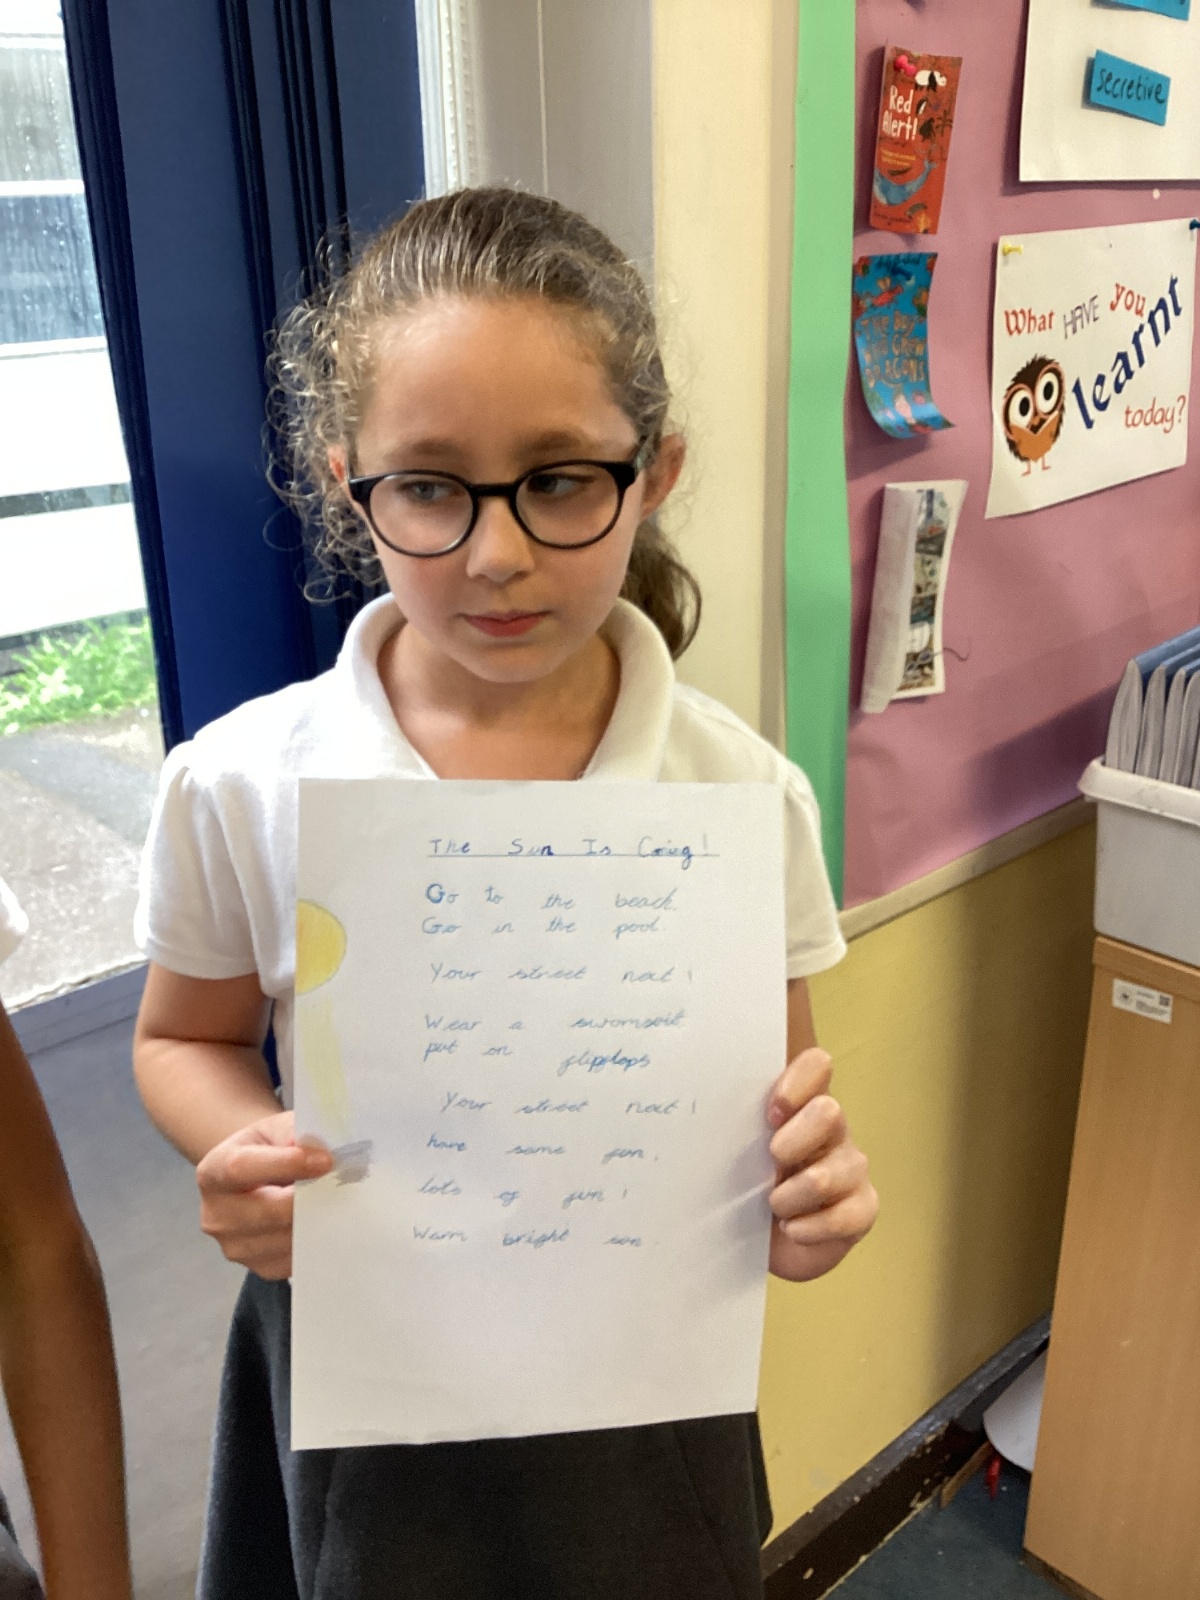 secretive
Red
Alert!
THE BOY
WHO GREW
DRAGONS
What HAVE you
learnt
today?
The Sun Is Coming!
Go to the beach.
Go in the pool.
Your street next!
Wear a swomsoit
put on flipflops
Your street next!
have some fun.
lots of fun!
Warm bright son.